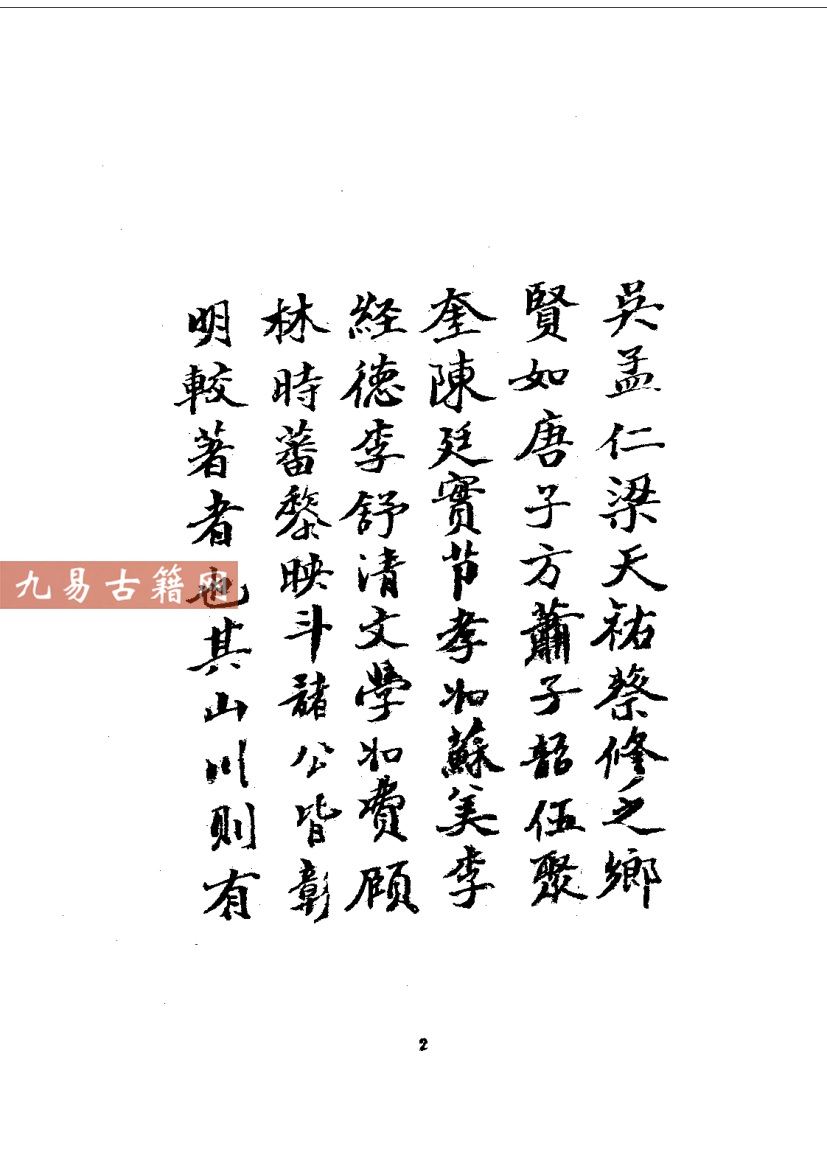 吳孟仁梁天祐蔡修之鄉
賢如唐子方蕭子韶伍聚
奎陳廷實节孝如蘇美李
経德李舒清文學如費顧
林時蕃黎映斗諸公皆彰
明較著者也其山川則有
九易古籍网
2